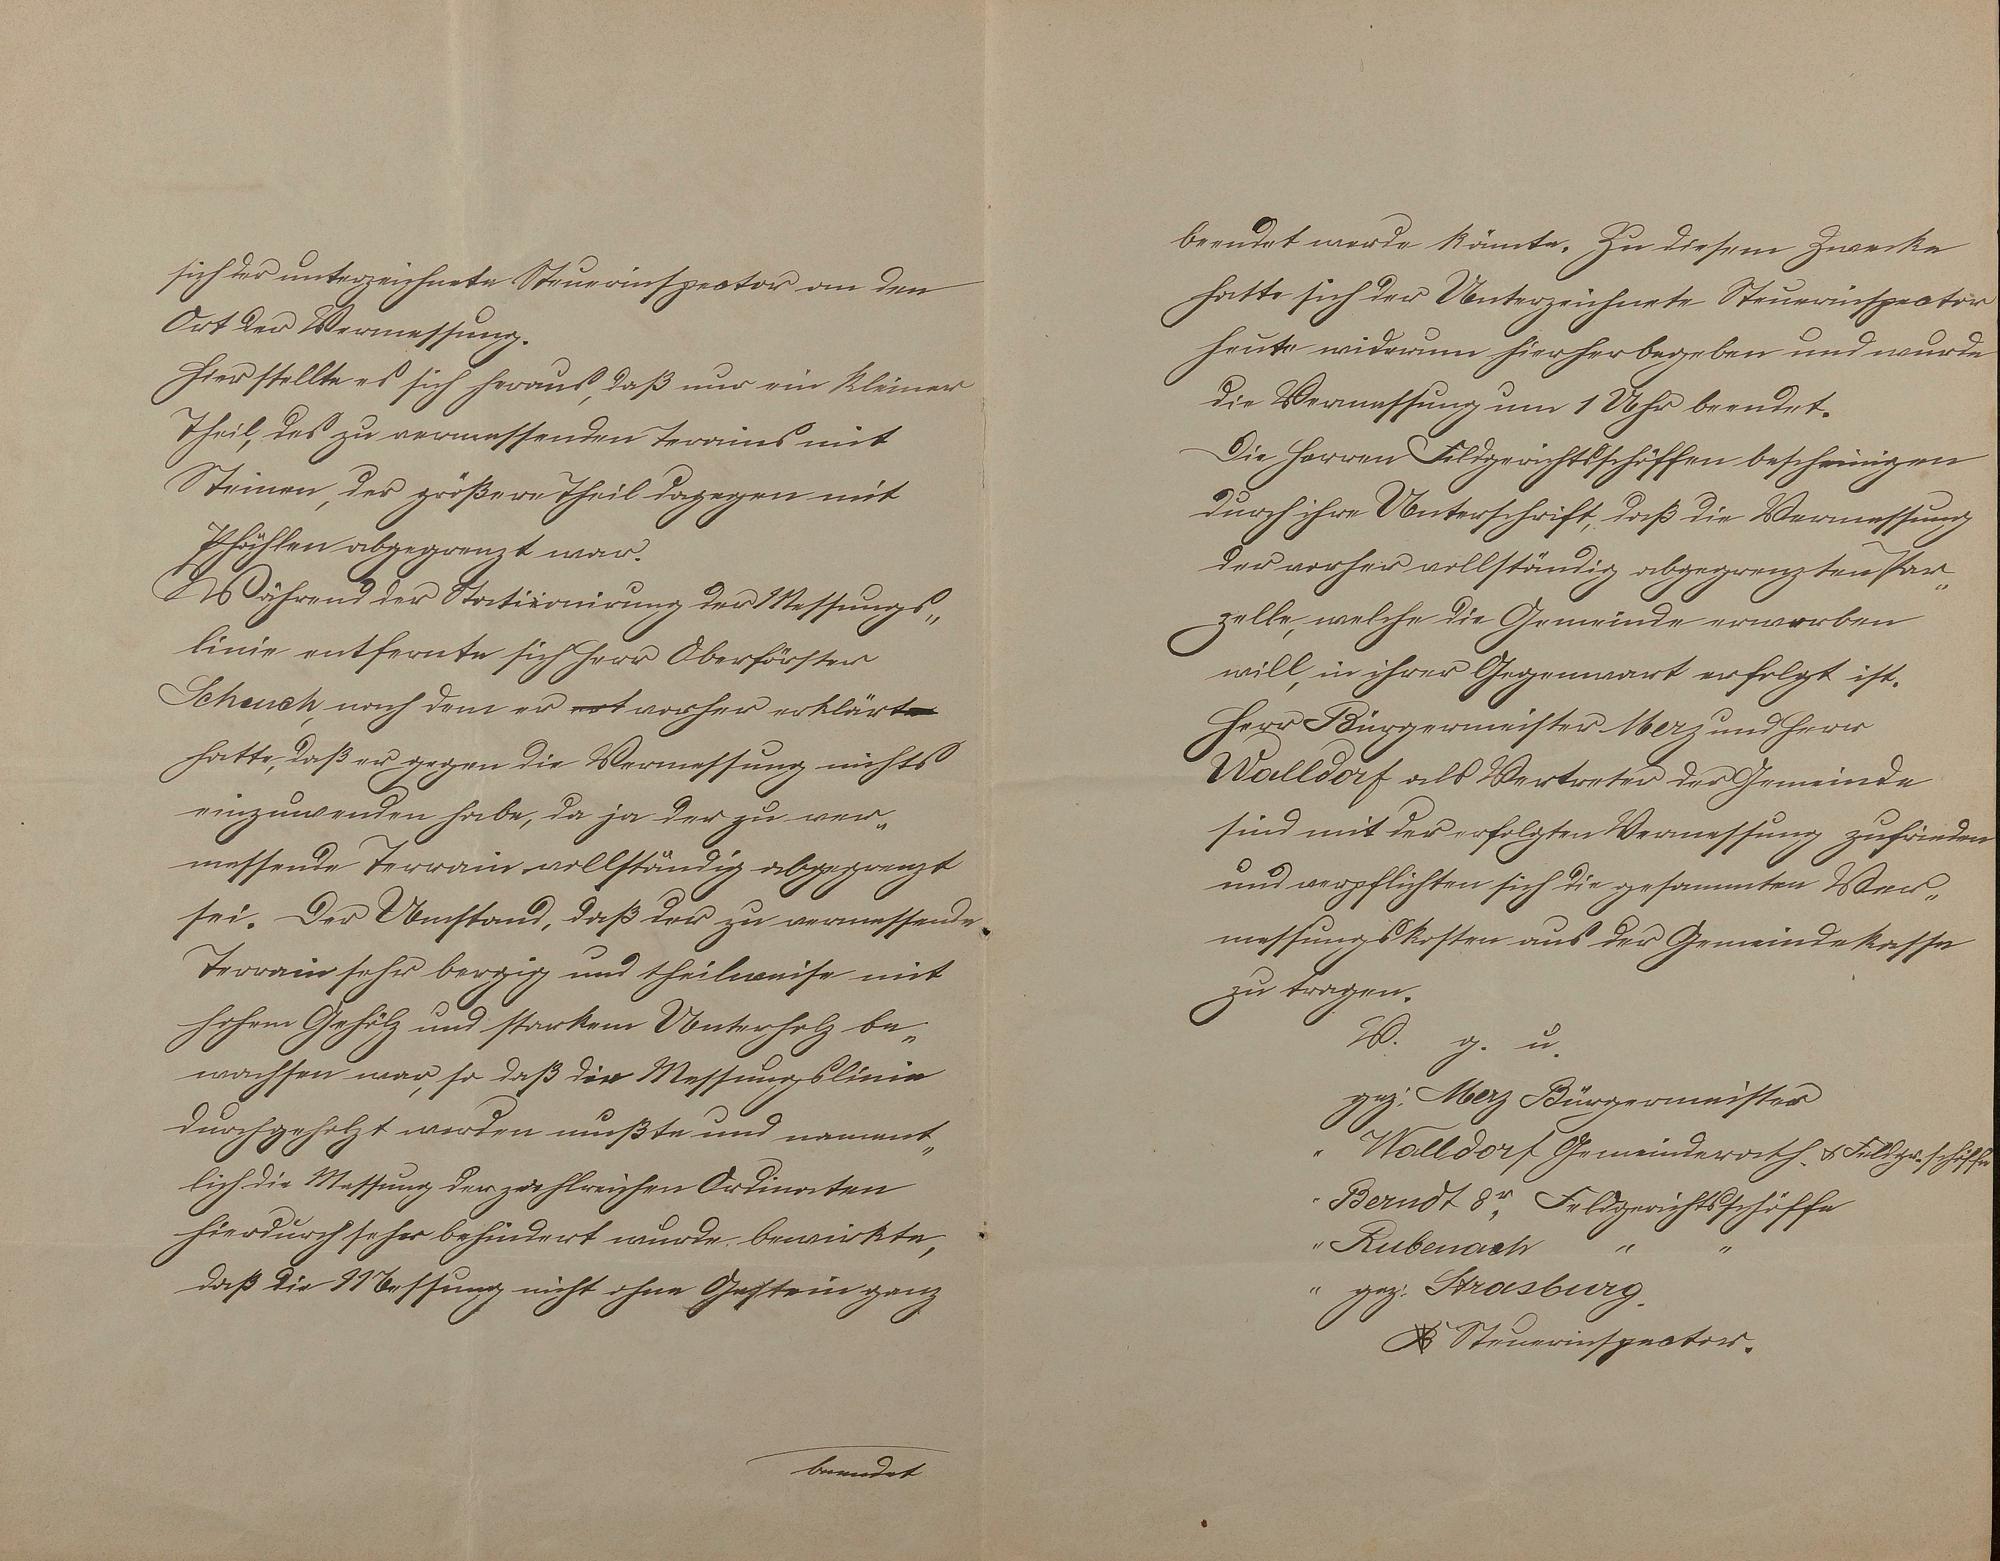 sich der unterzeichnete Steuerinspector an den
Ort der Vermessung.
Hier stellte es sich heraus, daß nur ein kleiner
Theil, des zu vermessenden Terains mit
Steinen, der größere Theil dagegen mit
Pfählen abgegrenzt war.
Während der Stationirung der Messungs„
linie entfernte sich Herr Oberförster
Scheuch, nach dem er vorher erklärt
hatte, daß er gegen die Vermessung nichts
einzuwenden habe, da ja der zu ver„
messende Terrain vollständig abgegrenzt
sei. Der Umstand, daß der zu vermessende
Terrain sehr bergig und theilweise mit
hohem Gehölz und starkem Unterholz be„
wachsen war, so daß die Messungslinie
durchgeholzt werden mußte und nament„
lich die Messung der zahlreichen Ordinaten
hierdurch sehr behindert wurde bewirkte,
daß die Messung nicht ohne Gestein ganz
beendet
beendet werde könnte. Zu diesem Zwecke
hatte sich der Unterzeichnete Steuerinspector
heute widerum hierher begeben und wurde
die Vermessung um 1 Uhr beendet.
Die Herren Feldgerichtsschöffen bescheinigen
durch ihre Unterschrift, daß die Vermessung
der vorher vollständig abgegrenzten Par„
zelle, welche die Gemeinde erwerben
will, in ihrer Gegenwart erfolgt ist.
Herr Bürgermeister Merz und Herr
Walldorf als Vertreter der Gemeinde
sind mit der erfolgten Vermessung zufrieden
und verpflichten sich die gesammten Ver„
messungskosten aus der Gemeindekasse
zu tragen.
V. g. u.
gez: Merz Bürgermeister
" Walldorf Gemeinderath. & Feldgr. schöffe
" Berndt 8r, Feldgerichtsschöffe
" Rubenach " "
" gez: Strasburg.
Steuerinspector.